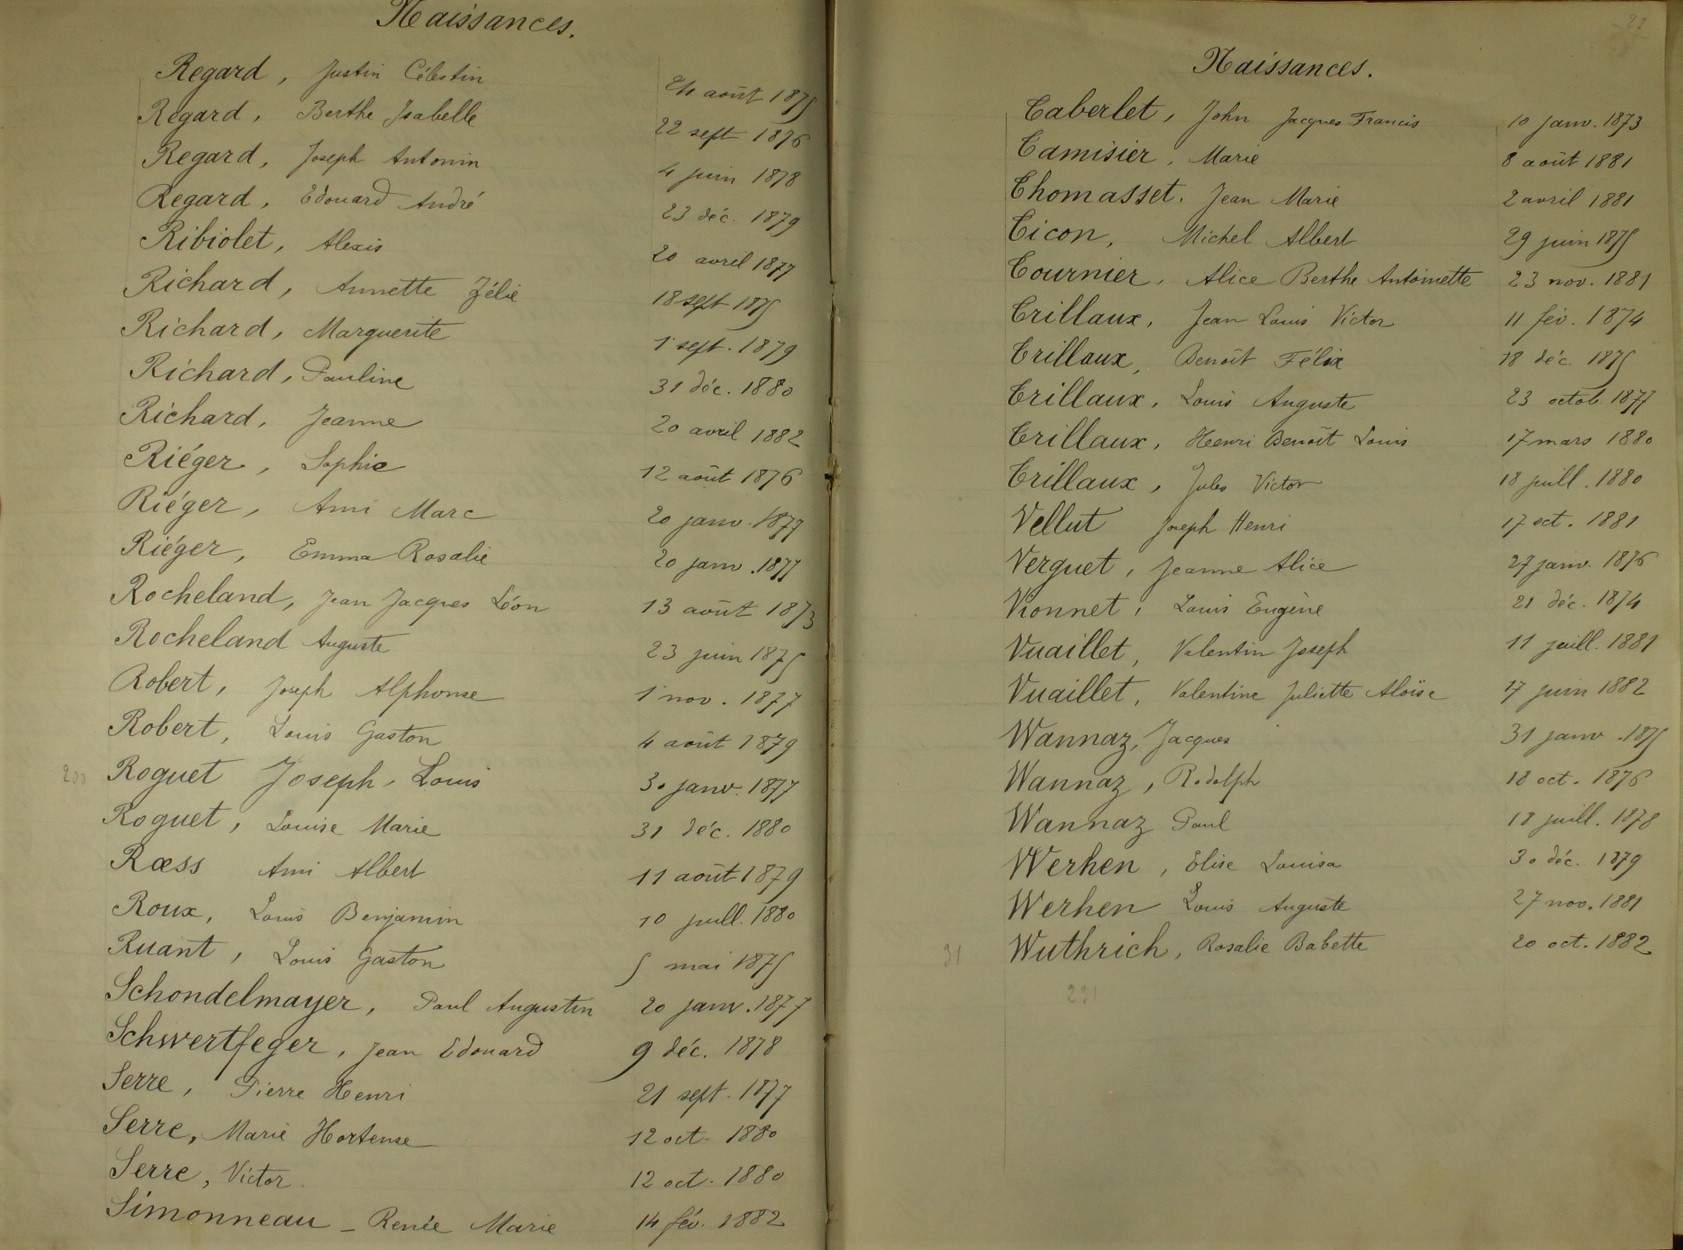 Naissances.
Regard, Justin Célestin 24 août 1875
Regard, Berthe Isabelle 22 sept 1876
Regard, Joseph Antonin 4 juin 1878
Regard, Edouard André 23 déc. 1879
Ribiolet, Alexis 20 avril 1877
Richard, Annette Zélie 18 sept 1875
Richard, Marguerite 1 sept. 1879
Richard, Pauline 31 déc. 1880
Richard, Jeanne 20 avril 1882
Riéger, Sophie 12 août 1876
Riéger, Ami Marc 20 janv. 1877
Riéger, Emma Rosalie 20 janv. 1877
Rocheland, Jean Jacques Léon 13 août 1873
Rocheland Auguste 23 juin 1875
Robert, Joseph Alphonse 1 nov. 1877
Robert, Louis Gaston 4 août 1879
200 Roguet Joseph, Louis 30 janv. 1877
Roguet, Louise Marie 31 déc. 1880
Rœss Ami Albert 11 août 1879
Roux, Louis Benjamin 10 juill. 1880
Ruant, Louis Gaston 5 mai 1875
Schondelmayer, Paul Augustin 20 janv. 1877
Schwertfeger, Jean Edouard 9 déc. 1878
Serre, Pierre Henri 21 sept. 1877
Serre, Marie Hortense 12 oct. 1880
Serre, Victor 12 oct. 1880
Simonneau - Renée Marie 14 fév. 1882
22
Naissances.
Taberlet, John Jacques Francis 10 janv. 1873
Tamisier, Marie 8 août 1881
Thomasset, Jean Marie 2 avril 1881
Ticon, Michel Albert 29 juin 1875
Tournier, Alice Berthe Antoinette 23 nov. 1881
Trillaux, Jean Louis Victor 11 fév. 1874
Trillaux, Benoît Félix 18 déc. 1875
Trillaux, Louis Auguste 23 octob 1877
Trillaux, Henri Benoît Louis 17 mars 1880
Trillaux, Jules Victor 18 juill. 1880
Vellut Joseph Henri 17 oct. 1881
Verguet, Jeanne Alice 27 janv. 1876
Vionnet, Louis Eugène 21 déc. 1874
Vuaillet, Valentin Joseph 11 juill. 1881
Vuaillet, Valentine Juliette Aloïse 17 juin 1882
Wannaz, Jacques 31 janv. 1875
Wannaz, Rodolph 18 oct. 1876
Wannaz Paul 18 juill. 1878
Werhen, Elise Louisa 30 déc. 1879
Werhen Louis Auguste 27 nov. 1881
31 Wuthrich, Rosalie Babette 20 oct. 1882
231